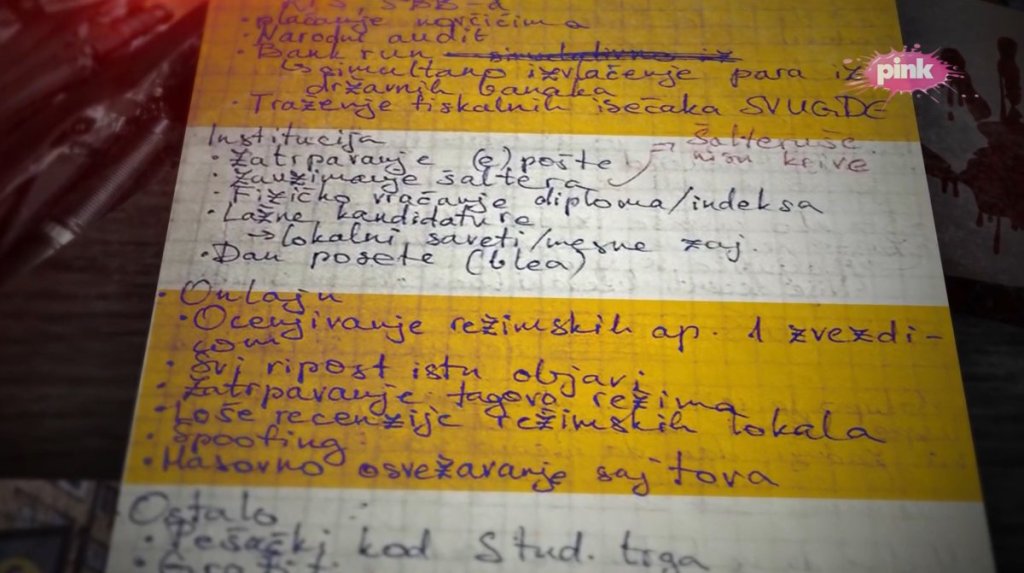 NIS, SBB-a
• plaćanje novčićima
• Narodni audit
• Bank run
↳ simultano izvlačenje para iz
državnih banaka
• Traženje fiskalnih isečaka SVUGDE
Institucija
• Zatrpavanje (e)pošte
→ Šalteruše
nisu krive
• Zauzimanje šaltera
• Fizičko vraćanje diploma/indeksa
• Lažne kandidature
→ lokalni saveti/mesne zaj.
• Dan posete (blea)
• Onlajn
• Ocenjivanje režimskih ap. 1 zvezdi-
com
• Svi ripost istu objavi
• Zatrpavanje tagova režima
• Loše recenzije režimskih lokala
• Spoofing
• Masovno osvežavanje sajtova
Ostalo :
• Pešački kod Stud. trga
pink